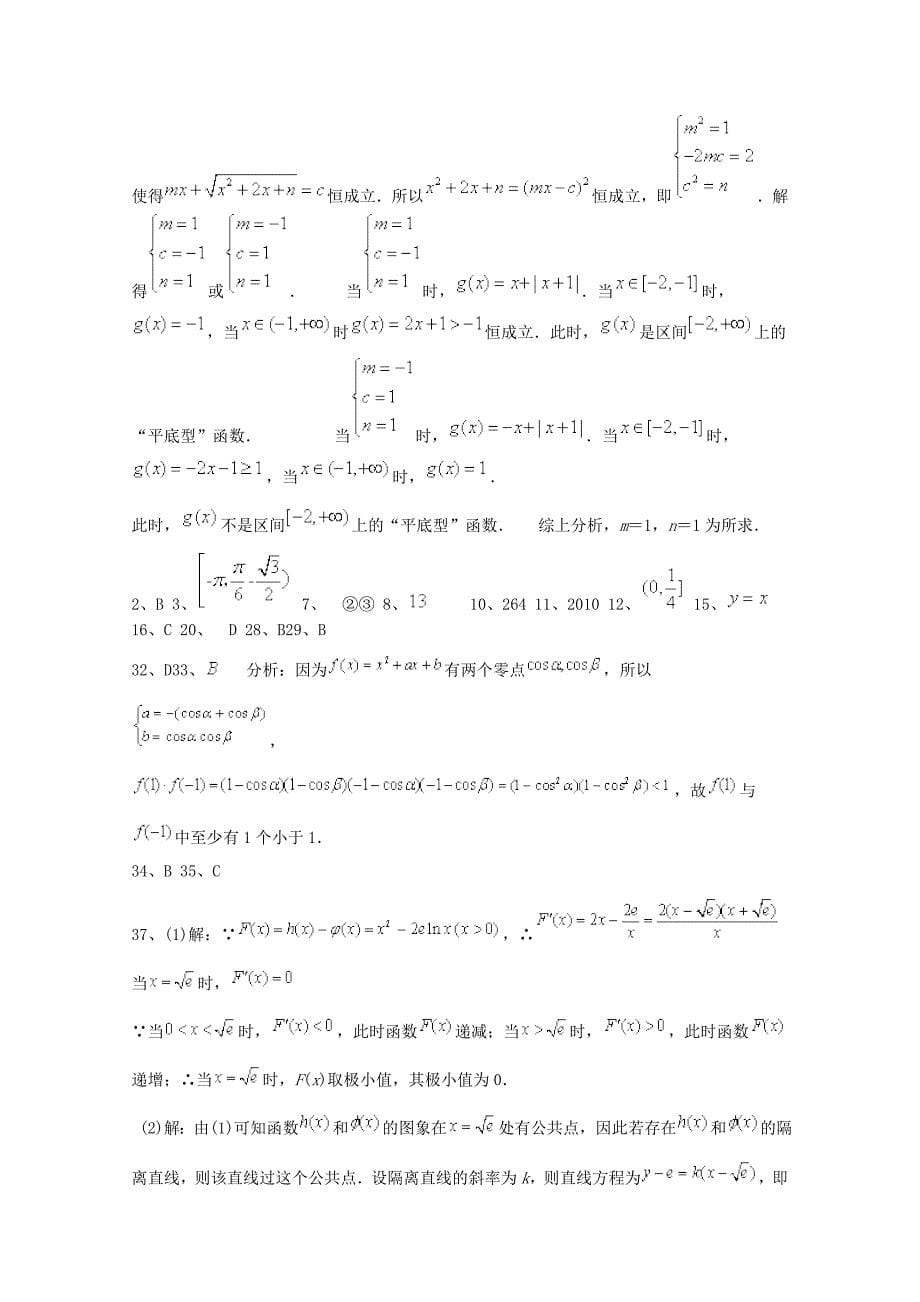 使得mx+√(x²+2x+n)=c恒成立．所以x²+2x+n=(mx-c)²恒成立，即{m²=1 -2mc=2 c²=n．解
得{m=1 c=-1 n=1或{m=-1 c=1 n=1． 当{m=1 c=-1 n=1时，g(x)=x+|x+1|．当x∈[-2,-1]时，
g(x)=-1，当x∈(-1,+∞)时g(x)=2x+1>-1恒成立．此时，g(x)是区间[-2,+∞)上的
“平底型”函数． 当{m=-1 c=1 n=1时，g(x)=-x+|x+1|．当x∈[-2,-1]时，
g(x)=-2x-1≥1，当x∈(-1,+∞)时，g(x)=1．
此时，g(x)不是区间[-2,+∞)上的“平底型”函数． 综上分析，m＝1，n＝1为所求．
2、B 3、[-π,π/6-√3/2) 7、 ②③ 8、13 10、264 11、2010 12、(0,1/4] 15、y=x
16、C 20、 D 28、B29、B
32、D33、B 分析：因为f(x)=x²+ax+b有两个零点cosα,cosβ，所以
{a=-(cosα+cosβ) b=cosαcosβ，
f(1)·f(-1)=(1-cosα)(1-cosβ)(-1-cosα)(-1-cosβ)=(1-cos²α)(1-cos²β)<1，故f(1)与
f(-1)中至少有1个小于1．
34、B 35、C
37、(1)解：∵F(x)=h(x)-φ(x)=x²-2eln x(x>0)，∴F′(x)=2x-2e/x=2(x-√e)(x+√e)/x
当x=√e时，F′(x)=0
∵当0<x<√e时，F′(x)<0，此时函数F(x)递减；当x>√e时，F′(x)>0，此时函数F(x)
递增；∴当x=√e时，F(x)取极小值，其极小值为0．
(2)解：由(1)可知函数h(x)和φ(x)的图象在x=√e处有公共点，因此若存在h(x)和φ(x)的隔
离直线，则该直线过这个公共点．设隔离直线的斜率为k，则直线方程为y-e=k(x-√e)，即